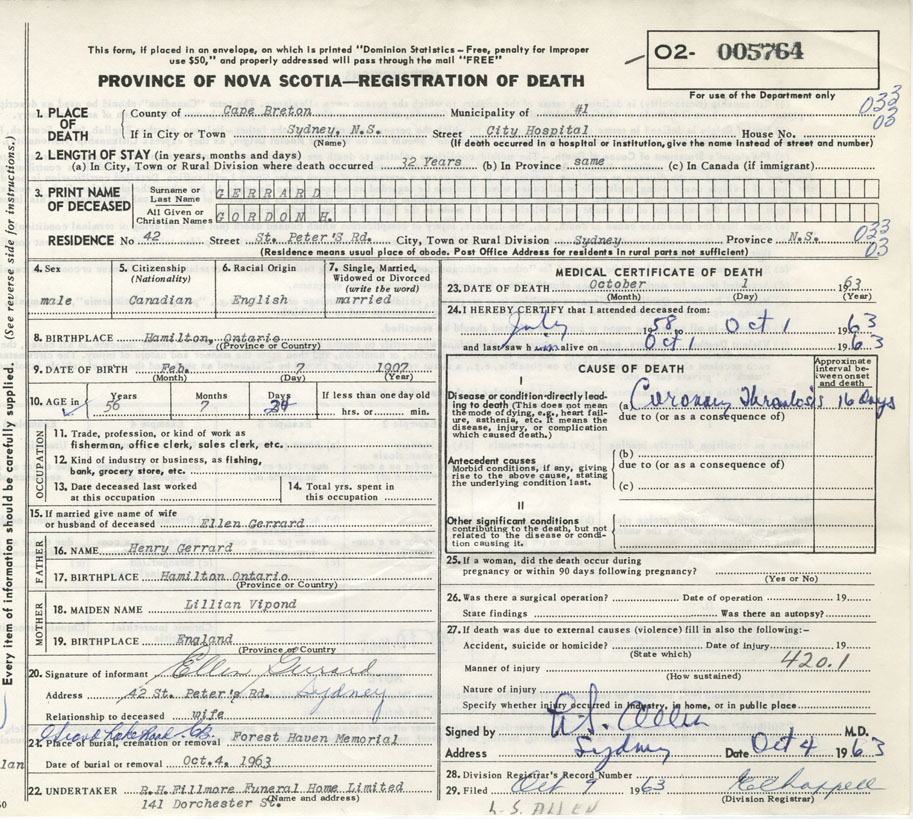 This form, if placed in an envelope, on which is printed "Dominion Statistics – Free, penalty for improper
use $50," and properly addressed will pass through the mail "FREE"
O2- 005764
For use of the Department only
PROVINCE OF NOVA SCOTIA—REGISTRATION OF DEATH
033
00
1. PLACE OF DEATH
County of Cape Breton Municipality of #1
If in City or Town Sydney, N.S. Street City Hospital House No.
(Name) (If death occurred in a hospital or institution, give the name instead of street and number)
2. LENGTH OF STAY (in years, months and days)
(a) In City, Town or Rural Division where death occurred 32 Years (b) In Province same (c) In Canada (if immigrant)
3. PRINT NAME OF DECEASED
Surname or Last Name GERRARD
All Given or Christian Names GORDON H.
033
03
RESIDENCE No 42 Street St. Peter's Rd. City, Town or Rural Division Sydney Province N.S.
(Residence means usual place of abode. Post Office Address for residents in rural parts not sufficient)
4. Sex
male
5. Citizenship
(Nationality)
Canadian
6. Racial Origin
English
7. Single, Married,
Widowed or Divorced
(write the word)
married
8. BIRTHPLACE Hamilton, Ontario
(Province or Country)
9. DATE OF BIRTH Feb. 7 1907
(Month) (Day) (Year)
10. AGE in
Years Months Days If less than one day old
56 7 24 hrs. or min.
OCCUPATION
11. Trade, profession, or kind of work as
fisherman, office clerk, sales clerk, etc.
12. Kind of industry or business, as fishing,
bank, grocery store, etc.
13. Date deceased last worked
at this occupation
14. Total yrs. spent in
this occupation
15. If married give name of wife
or husband of deceased Ellen Gerrard
FATHER
16. NAME Henry Gerrard
17. BIRTHPLACE Hamilton Ontario
(Province or Country)
MOTHER
18. MAIDEN NAME Lillian Vipond
19. BIRTHPLACE England
(Province or Country)
20. Signature of informant Ellen Gerrard
Address 42 St. Peter's Rd. Sydney
Relationship to deceased wife
21. Place of burial, cremation or removal Forest Haven Memorial
Date of burial or removal Oct.4, 1963
22. UNDERTAKER R.H. Fillmore Funeral Home Limited
(Name and address)
141 Dorchester St.
MEDICAL CERTIFICATE OF DEATH
23. DATE OF DEATH October 1 1963
(Month) (Day) (Year)
24. I HEREBY CERTIFY that I attended deceased from:
July 1958 to Oct 1 1963
and last saw h alive on Oct 1 1963
CAUSE OF DEATH
Approximate
interval be-
tween onset
and death
I
Disease or condition directly lead-
ing to death (This does not mean
the mode of dying, e.g., heart fail-
ure, asthenia, etc. It means the
disease, injury, or complication
which caused death.)
(a) Coronary Thrombosis 16 Days
due to (or as a consequence of)
Antecedent causes
Morbid conditions, if any, giving
rise to the above cause, stating
the underlying condition last.
(b)
due to (or as a consequence of)
(c)
II
Other significant conditions
contributing to the death, but not
related to the disease or condi-
tion causing it.
25. If a woman, did the death occur during
pregnancy or within 90 days following pregnancy?
(Yes or No)
26. Was there a surgical operation? Date of operation 19
State findings Was there an autopsy?
27. If death was due to external causes (violence) fill in also the following:–
Accident, suicide or homicide? Date of injury 19
(State which)
420.1
Manner of injury
(How sustained)
Nature of injury
Specify whether injury occurred in industry, in home, or in public place
Signed by A.S. Allen M.D.
Address Sydney Date Oct 4 1963
28. Division Registrar's Record Number
29. Filed Oct 9 1963 Chappell
(Division Registrar)
L.S. ALLEN
Every item of information should be carefully supplied. (See reverse side for instructions.)